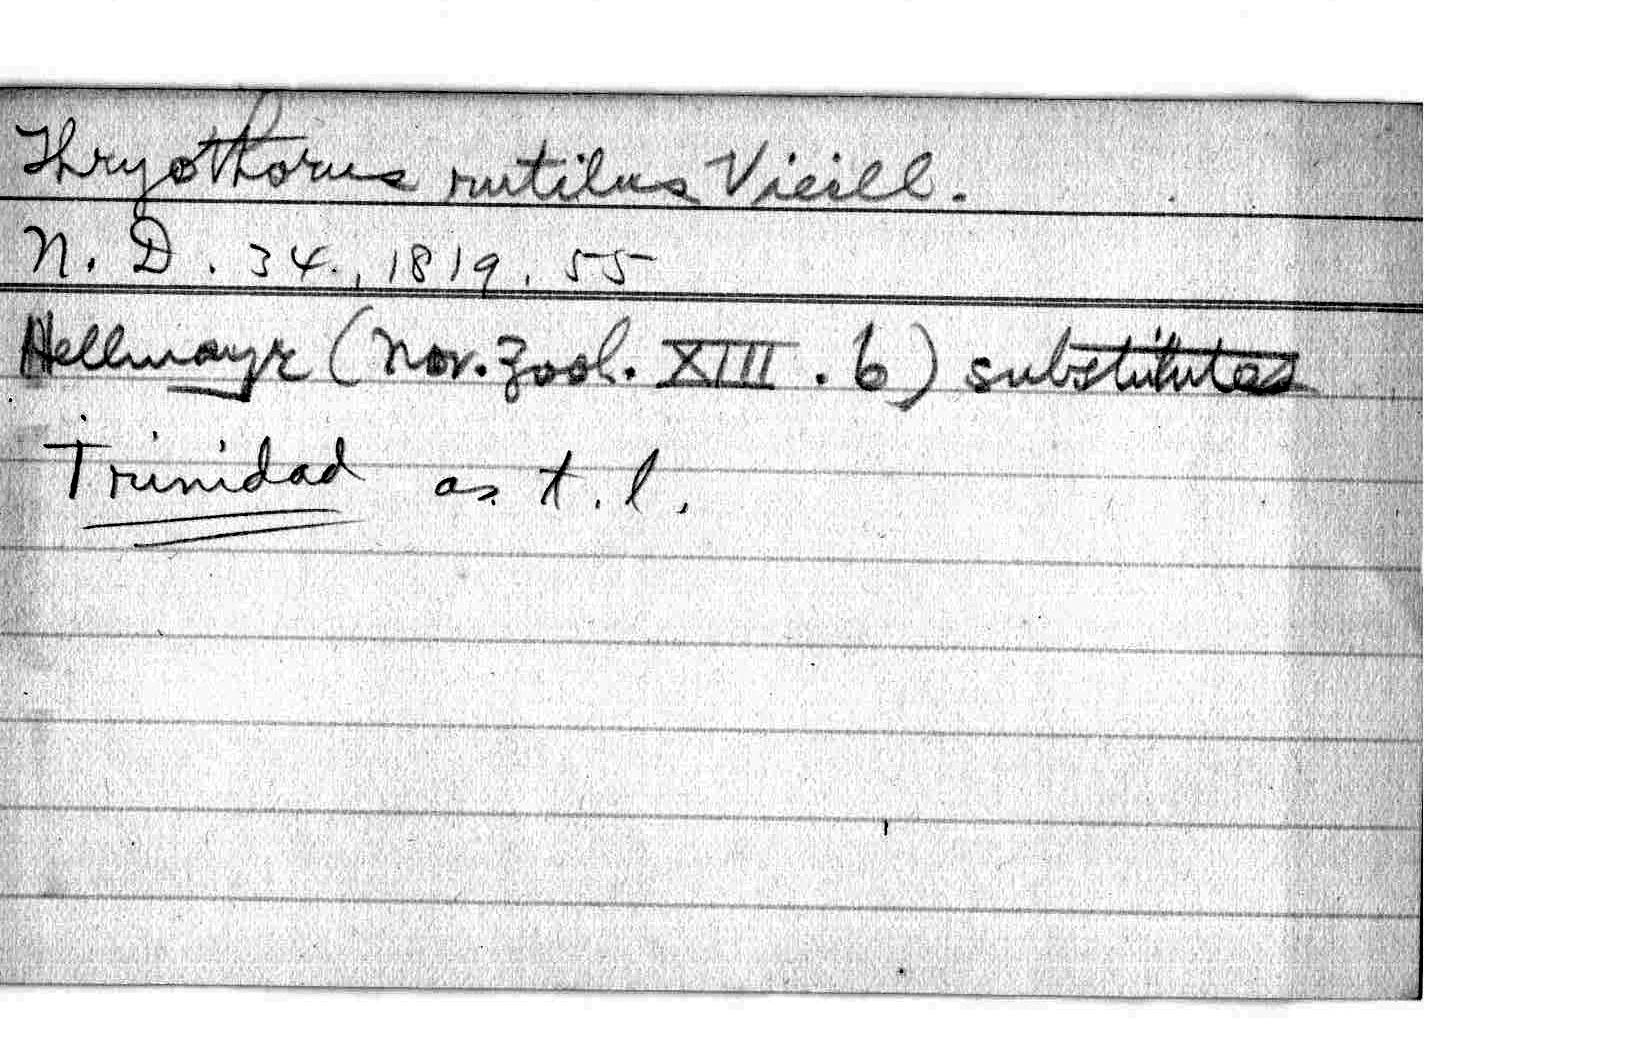 Thryothorus rutilus Vieill.
N. D. 34., 1819, 55
Hellmayr (Nov. Zool. XIII. 6) substitutes
Trinidad as t. l.